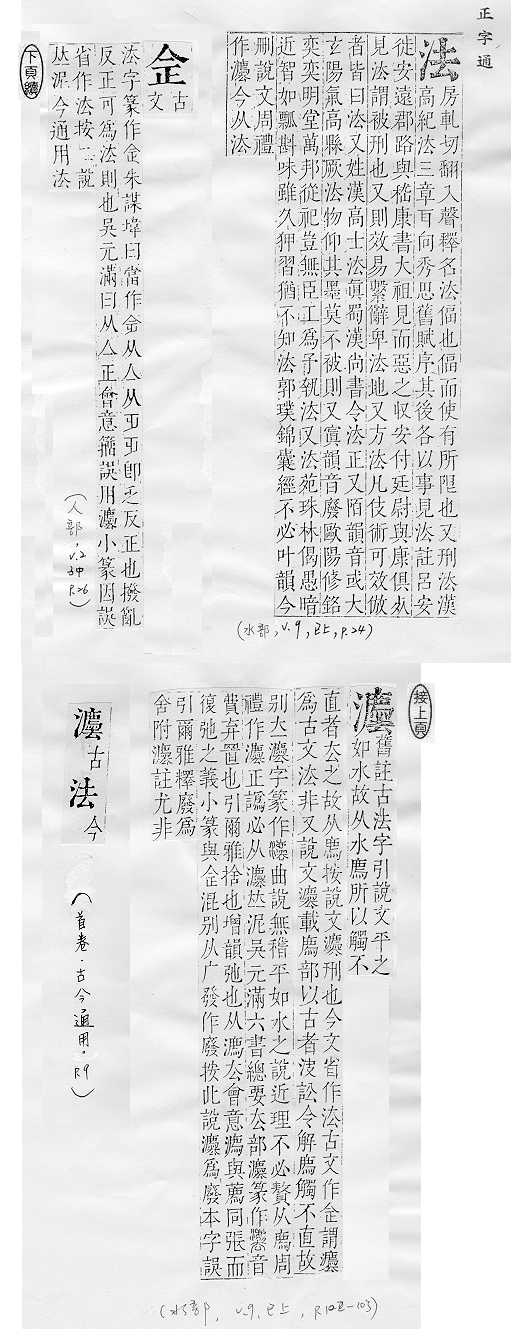 正字通
法 房軋切翻入聲釋名法偪也偪而使有所限也又刑法漢
高紀法三章耳向秀思舊賦序其後各以事見法註呂安
徙安遠郡路與嵇康書大祖見而惡之収安付廷尉與康俱死
見法謂被刑也又則效易繫辭卑法地又方法凡伎術可效倣
者皆曰法又姓漢高士法眞蜀漢尚書令法正又陌韻音或大
玄陽氣高縣厥法物仰其墨莫不被則又寘韻音廢歐陽修銘
奕奕明堂萬邦從祀豈無臣工爲予執法又法苑珠林偈愚暗
近智如瓢斟味雖久狎習猶不知法郭璞錦囊經不必叶韻今
刪說文周禮
作灋今从法
(水部,v.9,巳上,p.24)
佱 古文
法字篆作佱朱謀㙔曰當作佱从亼从丏丏卽乏反正也撥亂
反正可爲法則也吳元滿曰从亼正會意籒誤用灋小篆因誤
省作法按二說
𠀤泥今通用法
(人部,v.2,子中,p.26)
下頁續
接上頁
灋 舊註古法字引說文平之
如水故从水廌所以觸不
直者去之故从廌按說文灋刑也今文省作法古文作佱謂灋
爲古文法非又說文灋載廌部以古者決訟令解廌觸不直故
別厺灋字篆作灋曲說無稽平如水之說近理不必贅从廌周
禮作灋正譌必从灋𠀤泥吳元滿六書總要厺部灋篆作灋音
費弃置也引爾雅捨也增韻弛也从灋厺會意灋與薦同張而
復弛之義小篆與佱混別从广發作廢按此說灋爲廢本字誤
引爾雅釋廢爲
舍附灋註尤非
(水部,v.9,巳上,p.102-103)
灋 古
法 今
(首卷.古今通用.p.9)